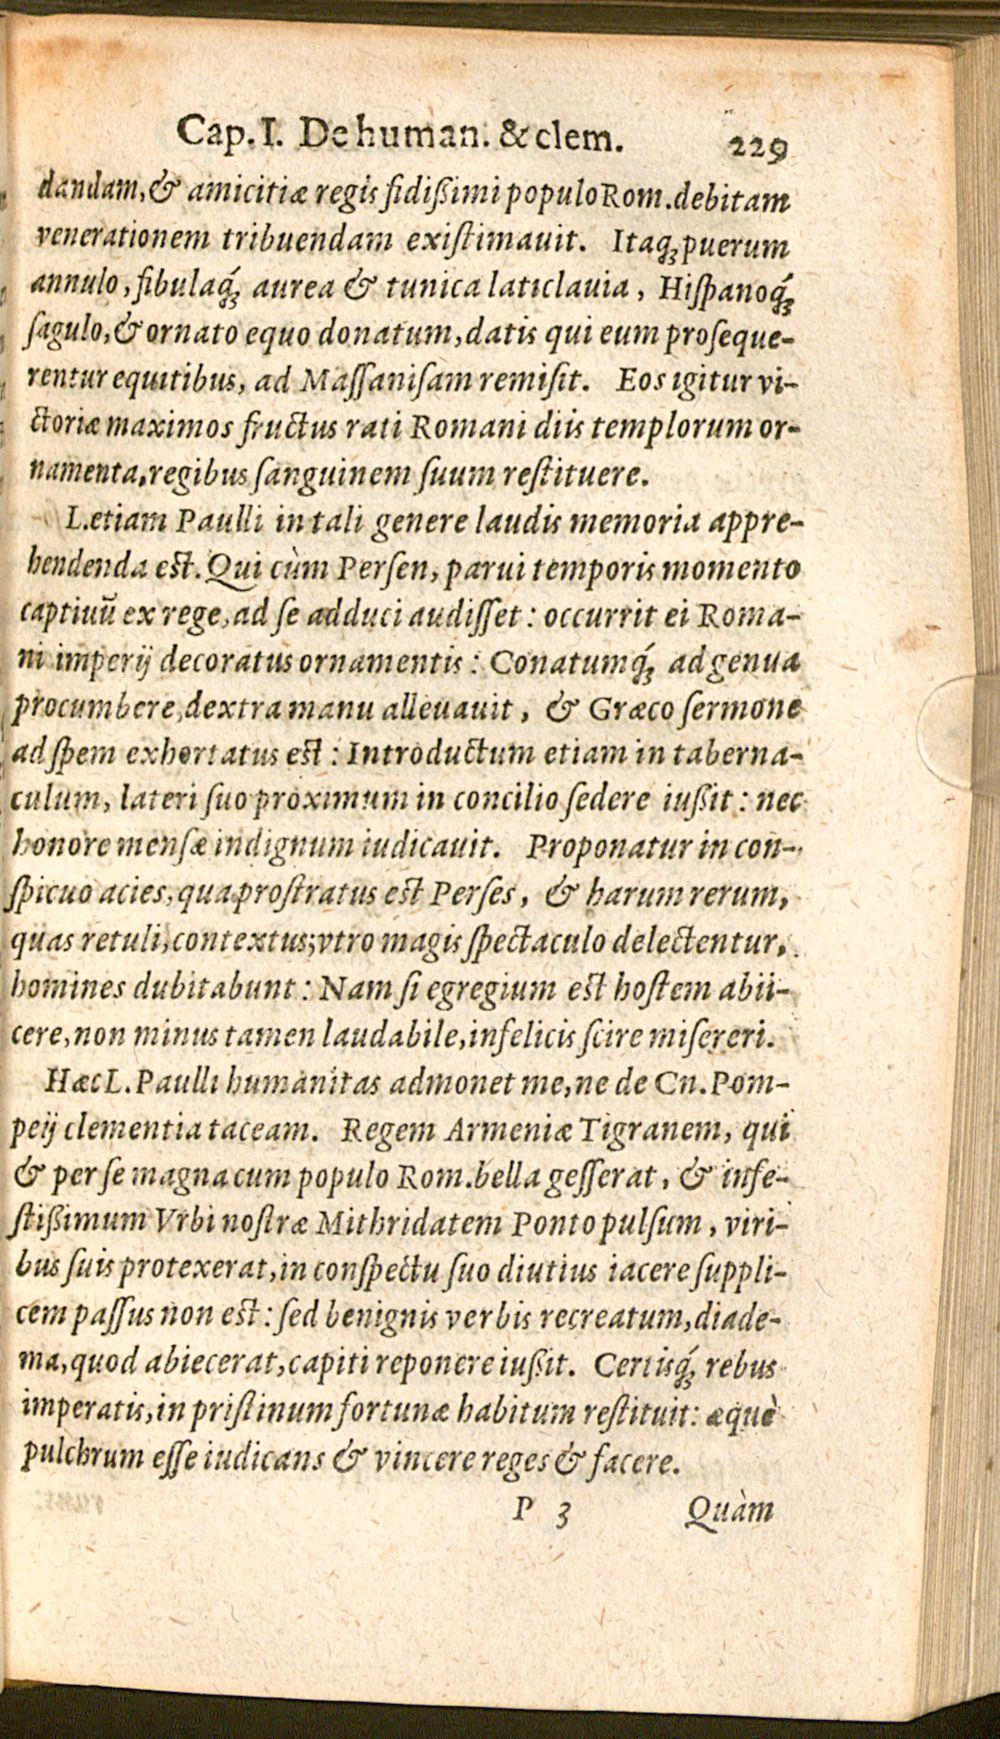 Cap. I. De human. & clem. 229
dandam, & amicitiæ regis fidißimi populo Rom. debitam
venerationem tribuendam exiſtimauit. Itaq́; puerum
annulo, fibulaq́; aurea & tunica laticlauia, Hiſpanoq́;
ſagulo, & ornato equo donatum, datis qui eum proſeque-
rentur equitibus, ad Maſſaniſam remiſit. Eos igitur vi-
ctoriæ maximos fructus rati Romani diis templorum or-
namenta, regibus ſanguinem ſuum reſtituere.
L. etiam Paulli in tali genere laudis memoria appre-
hendenda eſt. Qui cùm Perſen, parui temporis momento
captiuū ex rege, ad ſe adduci audiſſet: occurrit ei Roma-
ni imperij decoratus ornamentis: Conatumq́; ad genua
procumbere, dextra manu alleuauit, & Græco ſermone
ad ſpem exhortatus eſt: Introductum etiam in taberna-
culum, lateri ſuo proximum in concilio ſedere iußit: nec
honore menſæ indignum iudicauit. Proponatur in con-
ſpicuo acies, qua proſtratus eſt Perſes, & harum rerum,
quas retuli, contextus; vtro magis ſpectaculo delectentur,
homines dubitabunt: Nam ſi egregium eſt hoſtem abii-
cere, non minus tamen laudabile, infelicis ſcire miſereri.
Hæc L. Paulli humanitas admonet me, ne de Cn. Pom-
peij clementia taceam. Regem Armeniæ Tigranem, qui
& per ſe magna cum populo Rom. bella geſſerat, & infe-
ſtißimum Vrbi noſtræ Mithridatem Ponto pulſum, viri-
bus ſuis protexerat, in conſpectu ſuo diutius iacere ſuppli-
cem paſſus non eſt: ſed benignis verbis recreatum, diade-
ma, quod abiecerat, capiti reponere iußit. Certisq́; rebus
imperatis, in priſtinum fortunæ habitum reſtituit: æquè
pulchrum eſſe iudicans & vincere reges & facere.
P 3 Quàm